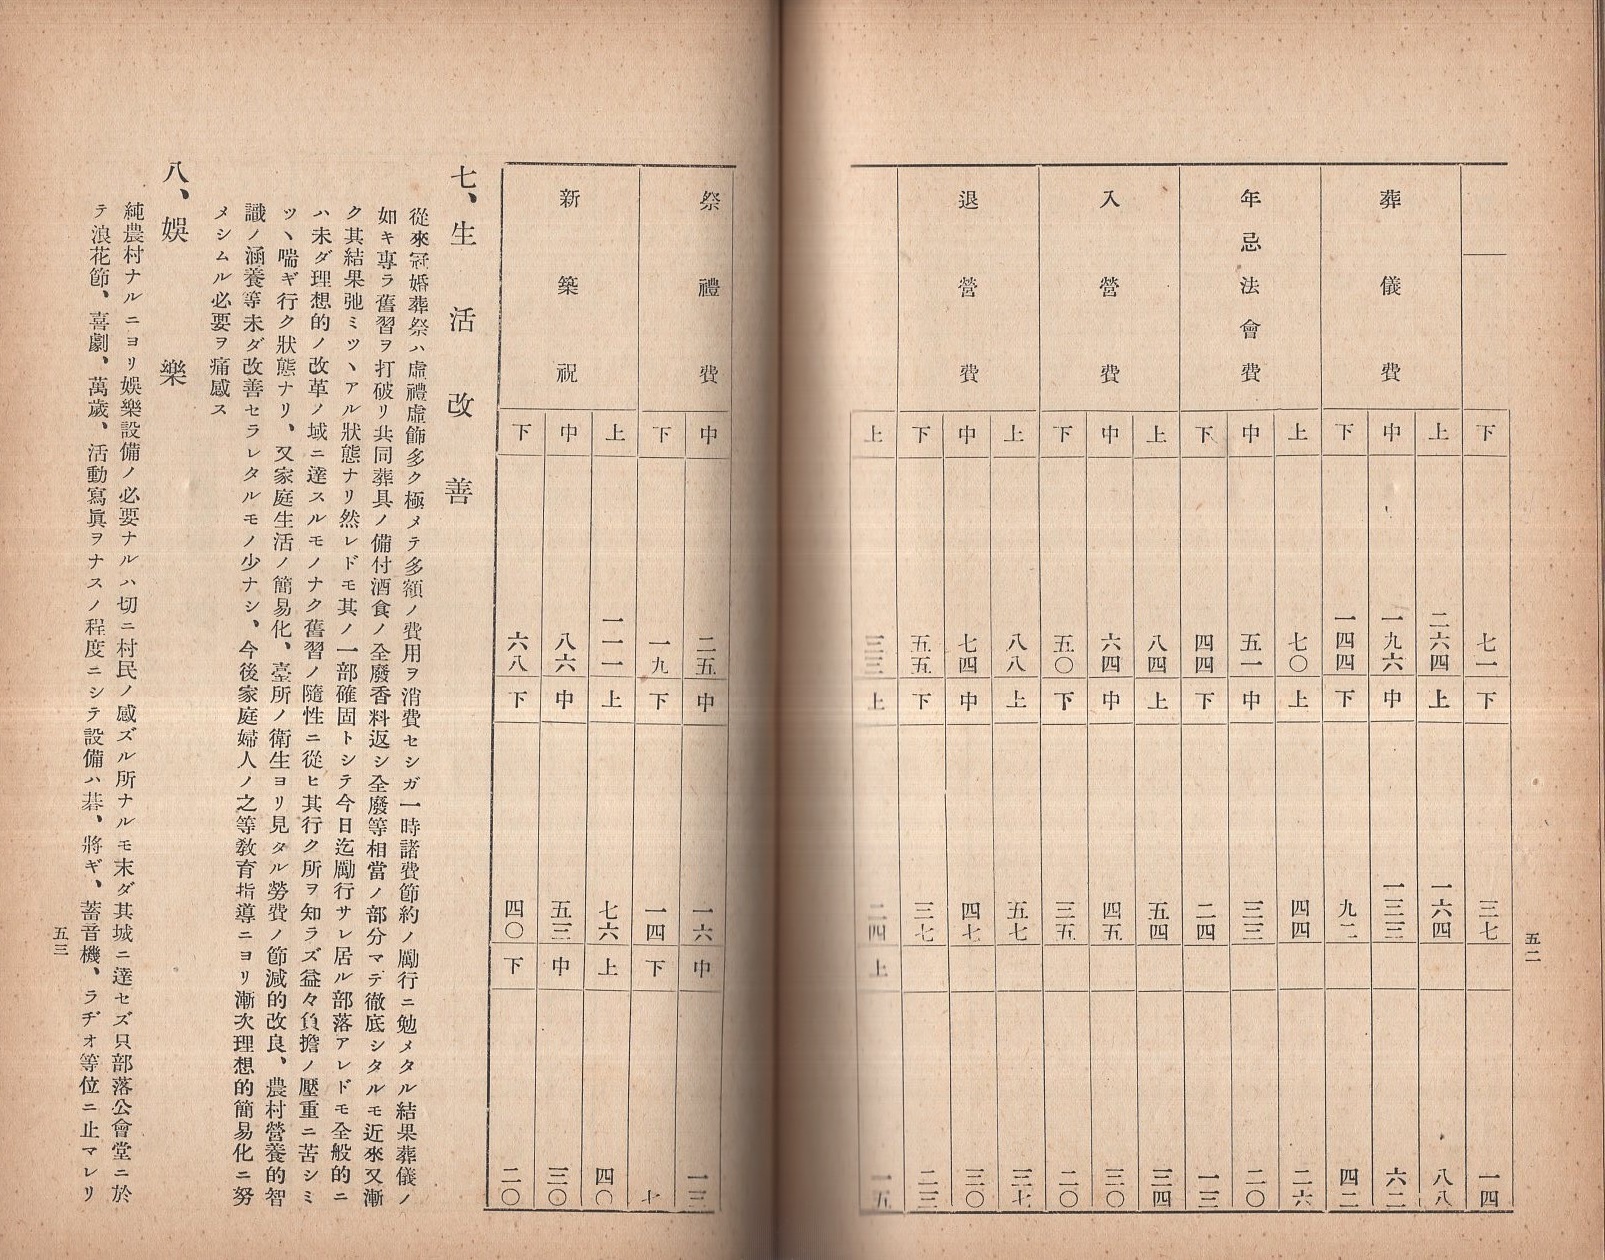 下 七一 下 三七 一四
葬儀費
上 二六四 上 一六四 八八
中 一九六 中 一三三 六二
下 一四四 下 九二 四二
年忌法會費
上 七〇 上 四四 二六
中 五一 中 三三 二〇
下 四四 下 二四 一三
入營費
上 八四 上 五四 三四
中 六四 中 四五 三〇
下 五〇 下 三五 二〇
退營費
上 八八 上 五七 三七
中 七四 中 四七 三〇
下 五五 下 三七 二三
上 三三 上 二四 上 一五
五二
祭禮費
中 二五 中 一六 中 一三
下 一九 下 一四 下 七
新築祝
上 一一一 上 七六 上 四〇
中 八六 中 五三 中 三〇
下 六八 下 四〇 下 二〇
七、生活改善
從來冠婚葬祭ハ虛禮虛飾多ク極メテ多額ノ費用ヲ消費セシガ一時諸費節約ノ勵行ニ勉メタル結果葬儀ノ
如キ專ラ舊習ヲ打破リ共同葬具ノ備付酒食ノ全廢香料返シ全廢等相當ノ部分マデ徹底シタルモ近來又漸
ク其結果弛ミツヽアル狀態ナリ然レドモ其ノ一部確固トシテ今日迄勵行サレ居ル部落アレドモ全般的ニ
ハ未ダ理想的ノ改革ノ域ニ達スルモノナク舊習ノ隨性ニ從ヒ其行ク所ヲ知ラズ益々負擔ノ壓重ニ苦シミ
ツヽ喘ギ行ク狀態ナリ、又家庭生活ノ簡易化、臺所ノ衛生ヨリ見タル勞費ノ節減的改良、農村營養的智
識ノ涵養等未ダ改善セラレタルモノ少ナシ、今後家庭婦人ノ之等敎育指導ニヨリ漸次理想的簡易化ニ努
メシムル必要ヲ痛感ス
八、娛樂
純農村ナルニヨリ娛樂設備ノ必要ナルハ切ニ村民ノ感ズル所ナルモ末ダ其域ニ達セズ只部落公會堂ニ於
テ浪花節、喜劇、萬歲、活動寫眞ヲナスノ程度ニシテ設備ハ碁、將ギ、蓄音機、ラヂオ等位ニ止マレリ
五三